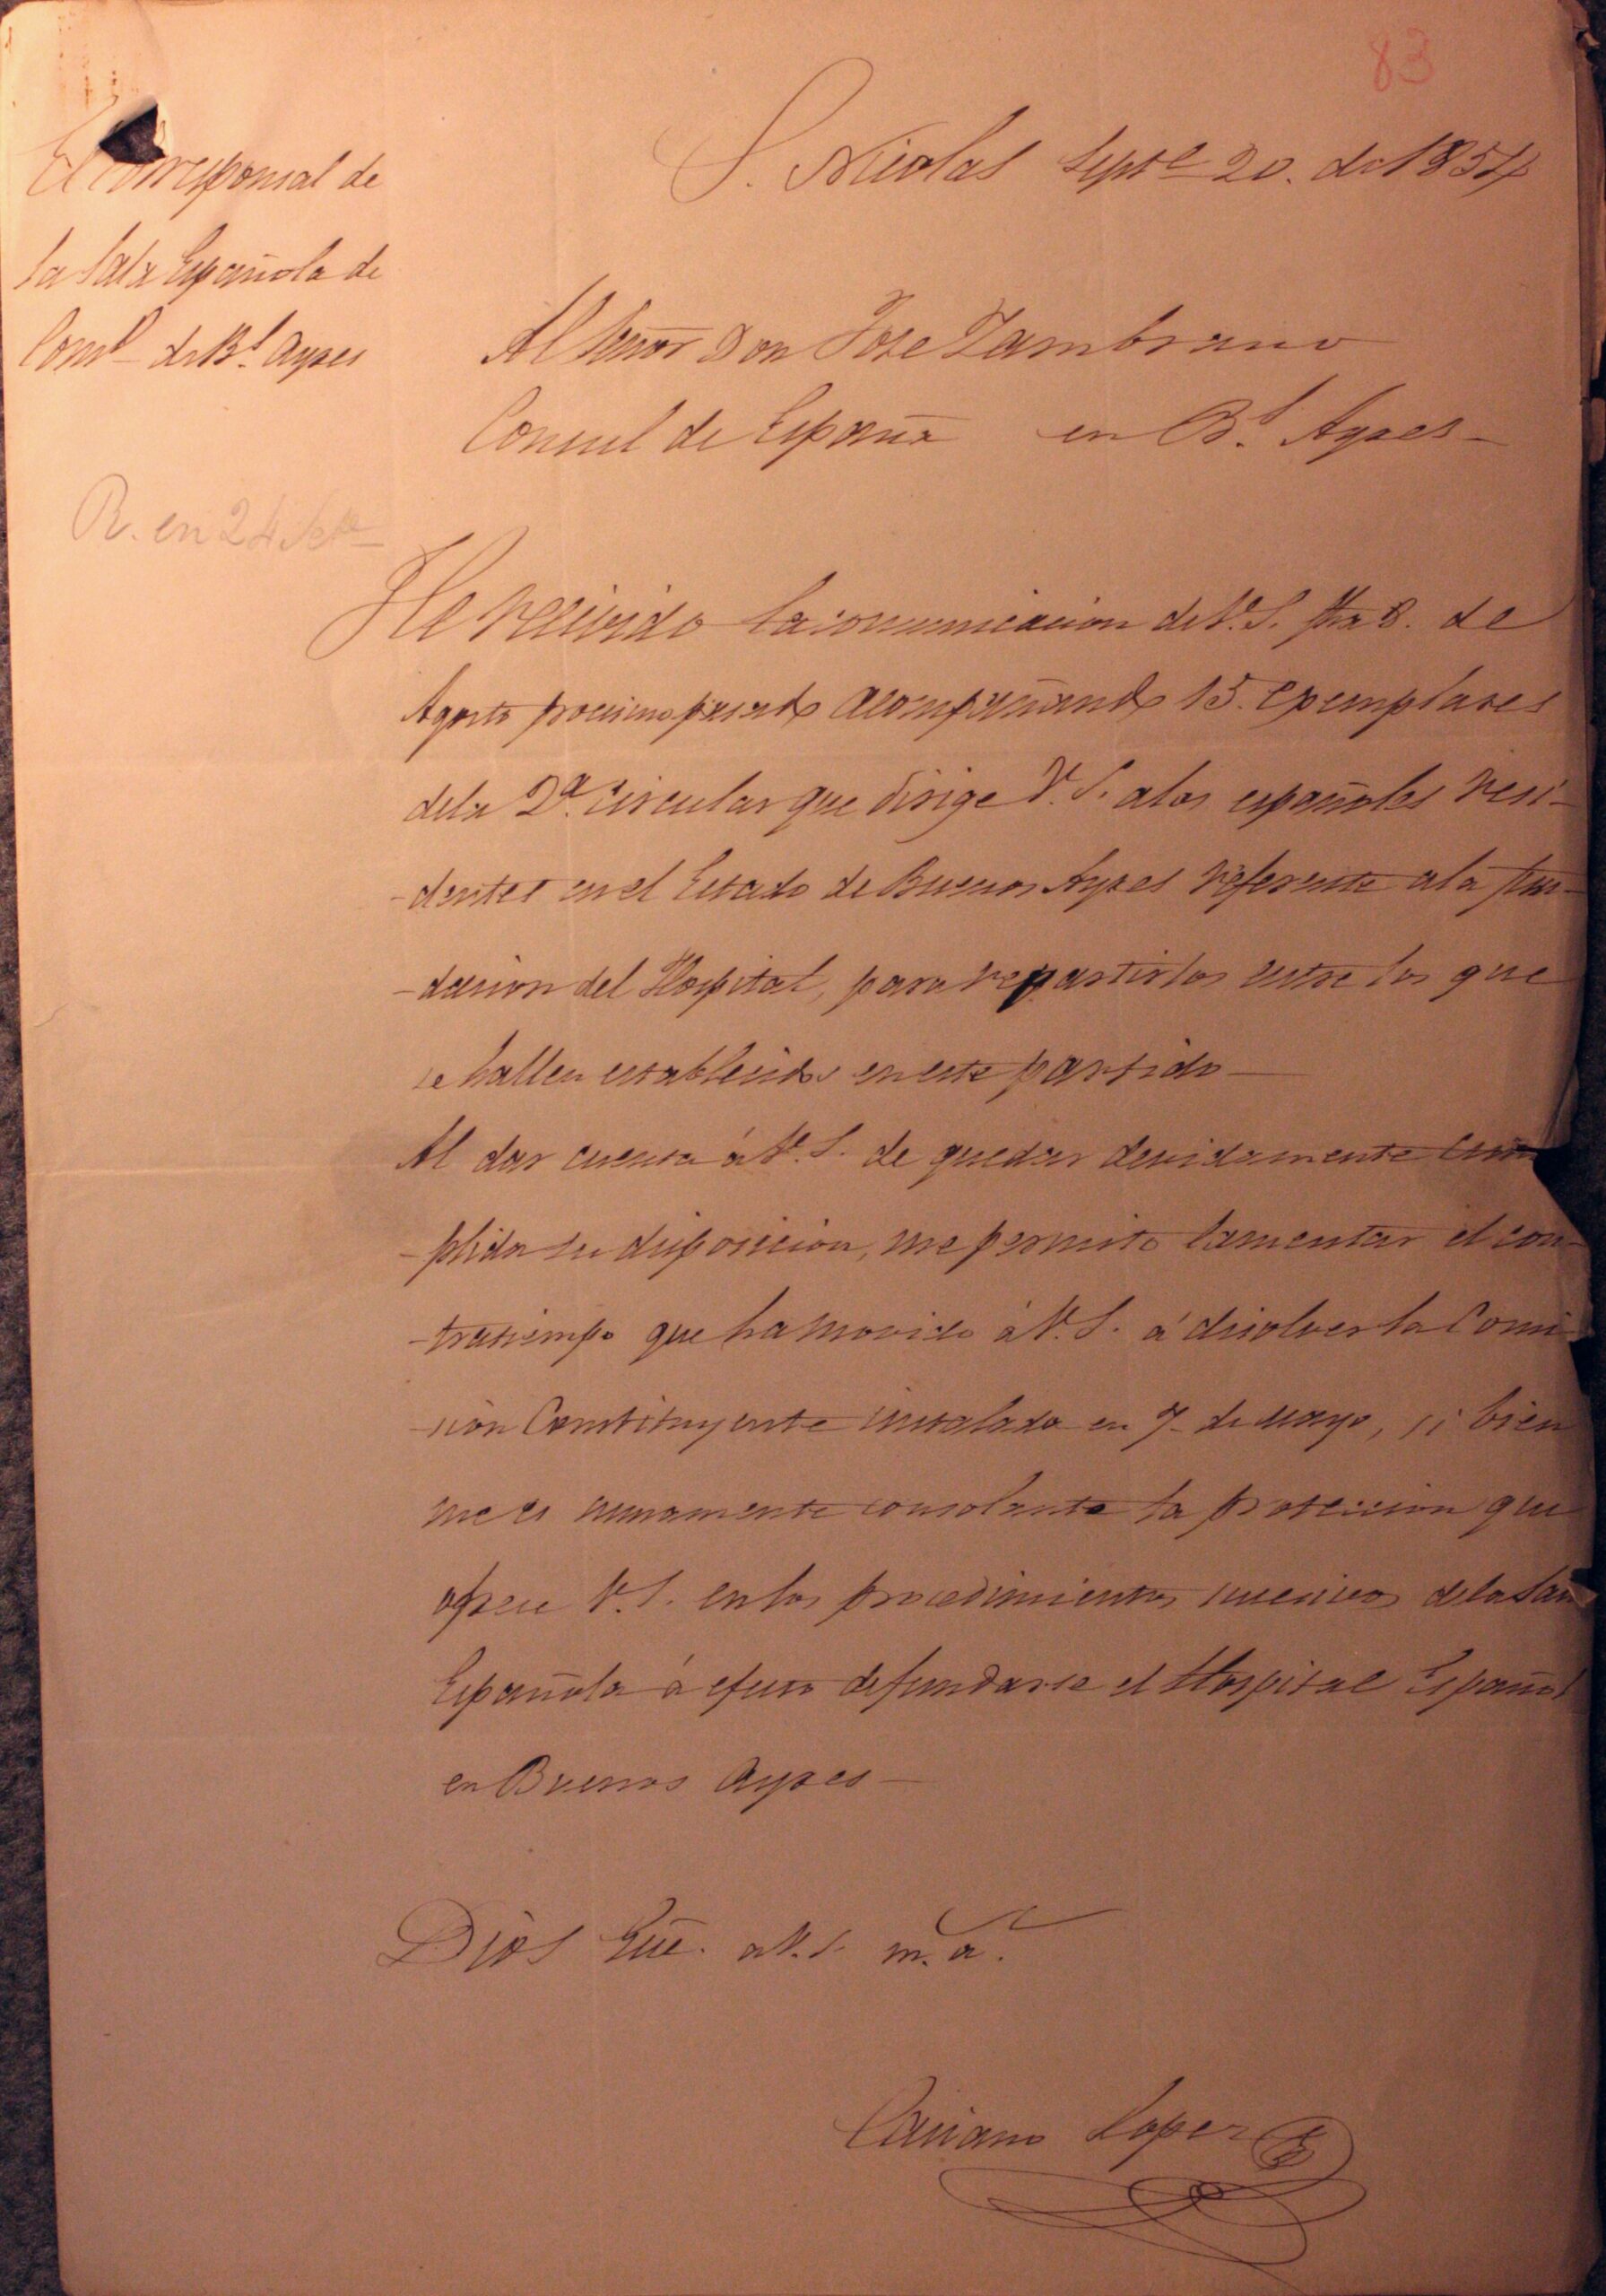 83
S. Nicolas Septe 20. de 1854
El Corresponsal de
la Sala Española de
Comо de Bs. Ayres
Al Señor Don Jose Zambrano
Consul de España en Bs. Ayres-
R. en 24 Sete
He recivido la comunicacion de V.S. fha 8. de
Agosto procsimo pasado acompañando 15. egemplares
dela 2a. circular que dirige V.S. a los españoles resi-
-dentes en el Estado de Buenos Ayres referente ala fun-
-dacion del Hospital, para repartirlos entre los que
se hallen establecidos en este partido-
Al dar cuenta á V.S. de quedar devidamente cum
-plida su disposicion, me permito lamentar el con-
-tratiempo que ha movido á V.S. á disolver la Comi
-sion Constituyente instalada en 7- de Mayo, si bien
me es sumamente consolante la proteccion que
ofrece V.S. en los procedimientos sucecivos dela Sala
Española á efecto de fundarse el Hospital Español
en Buenos Ayres-
Dios Gue. a V.S. m. a.
Casiano Lopez